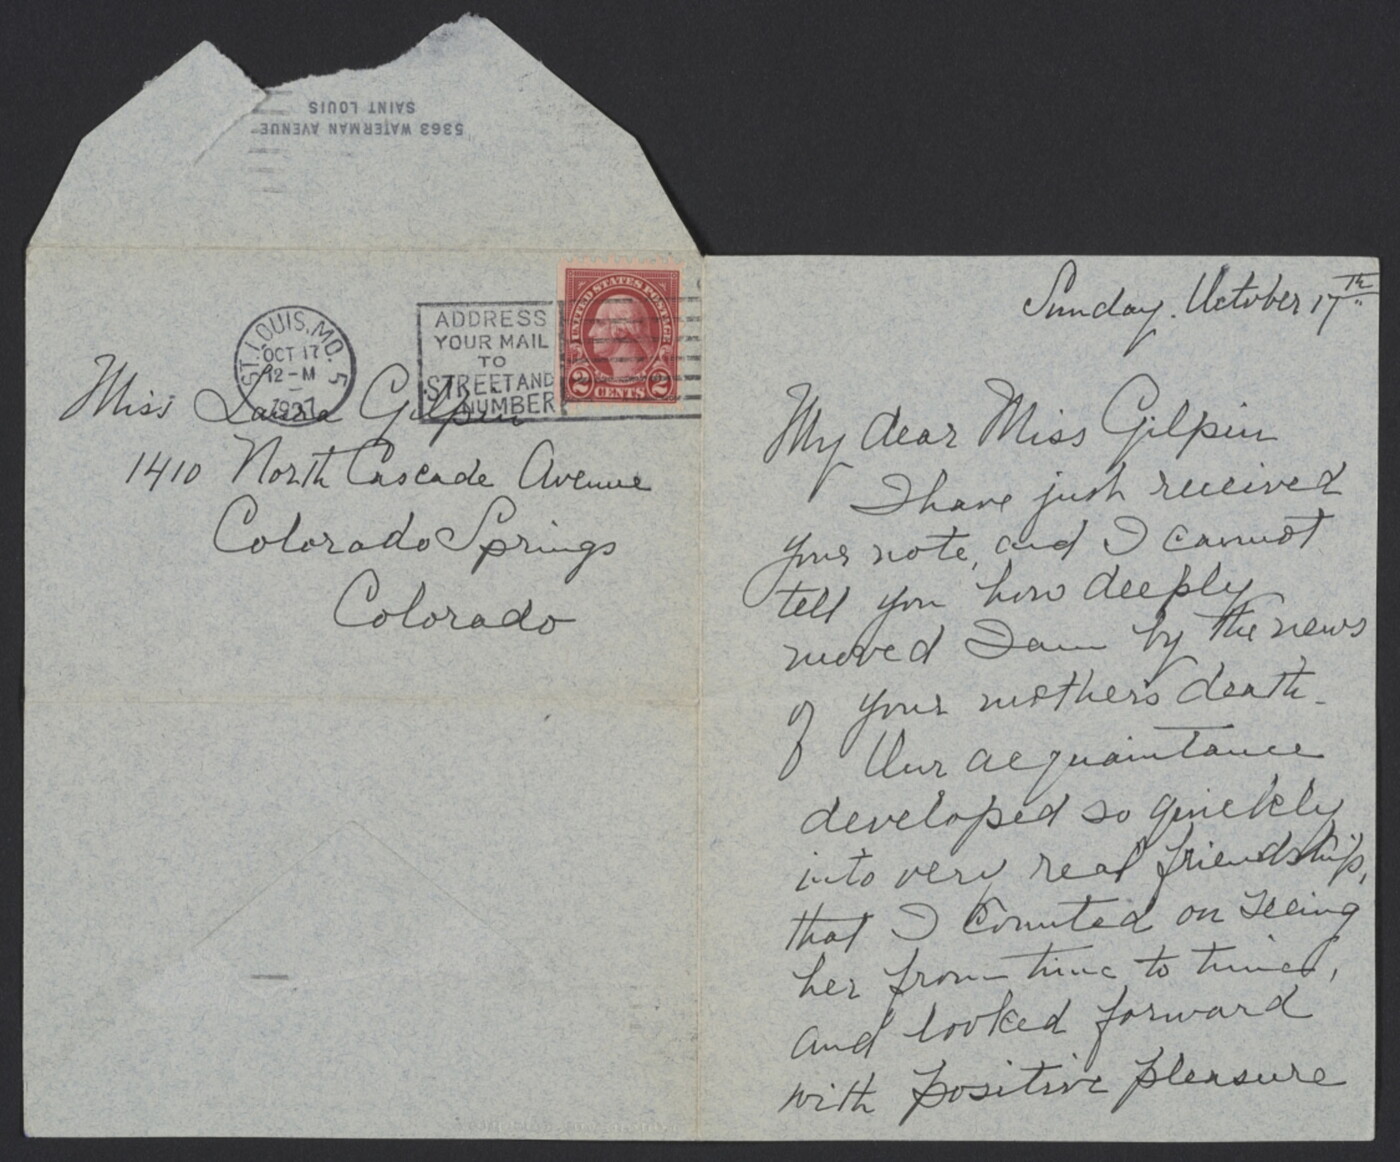 5363 WATERMAN AVENUE
SAINT LOUIS
ST. LOUIS, MO. 5
OCT 17
12-M
1937
ADDRESS
YOUR MAIL
TO
STREET AND
NUMBER
UNITED STATES POSTAGE
2 CENTS 2
Miss Laura Gilpin
1410 North Cascade Avenue
Colorado Springs
Colorado
Sunday. October 17th
My dear Miss Gilpin
I have just received
your note, and I cannot
tell you how deeply
moved I am by the news
of your mother's death.
Our acquaintance
developed so quickly
into very real friendship,
that I counted on seeing
her from time to time,
and looked forward
with positive pleasure